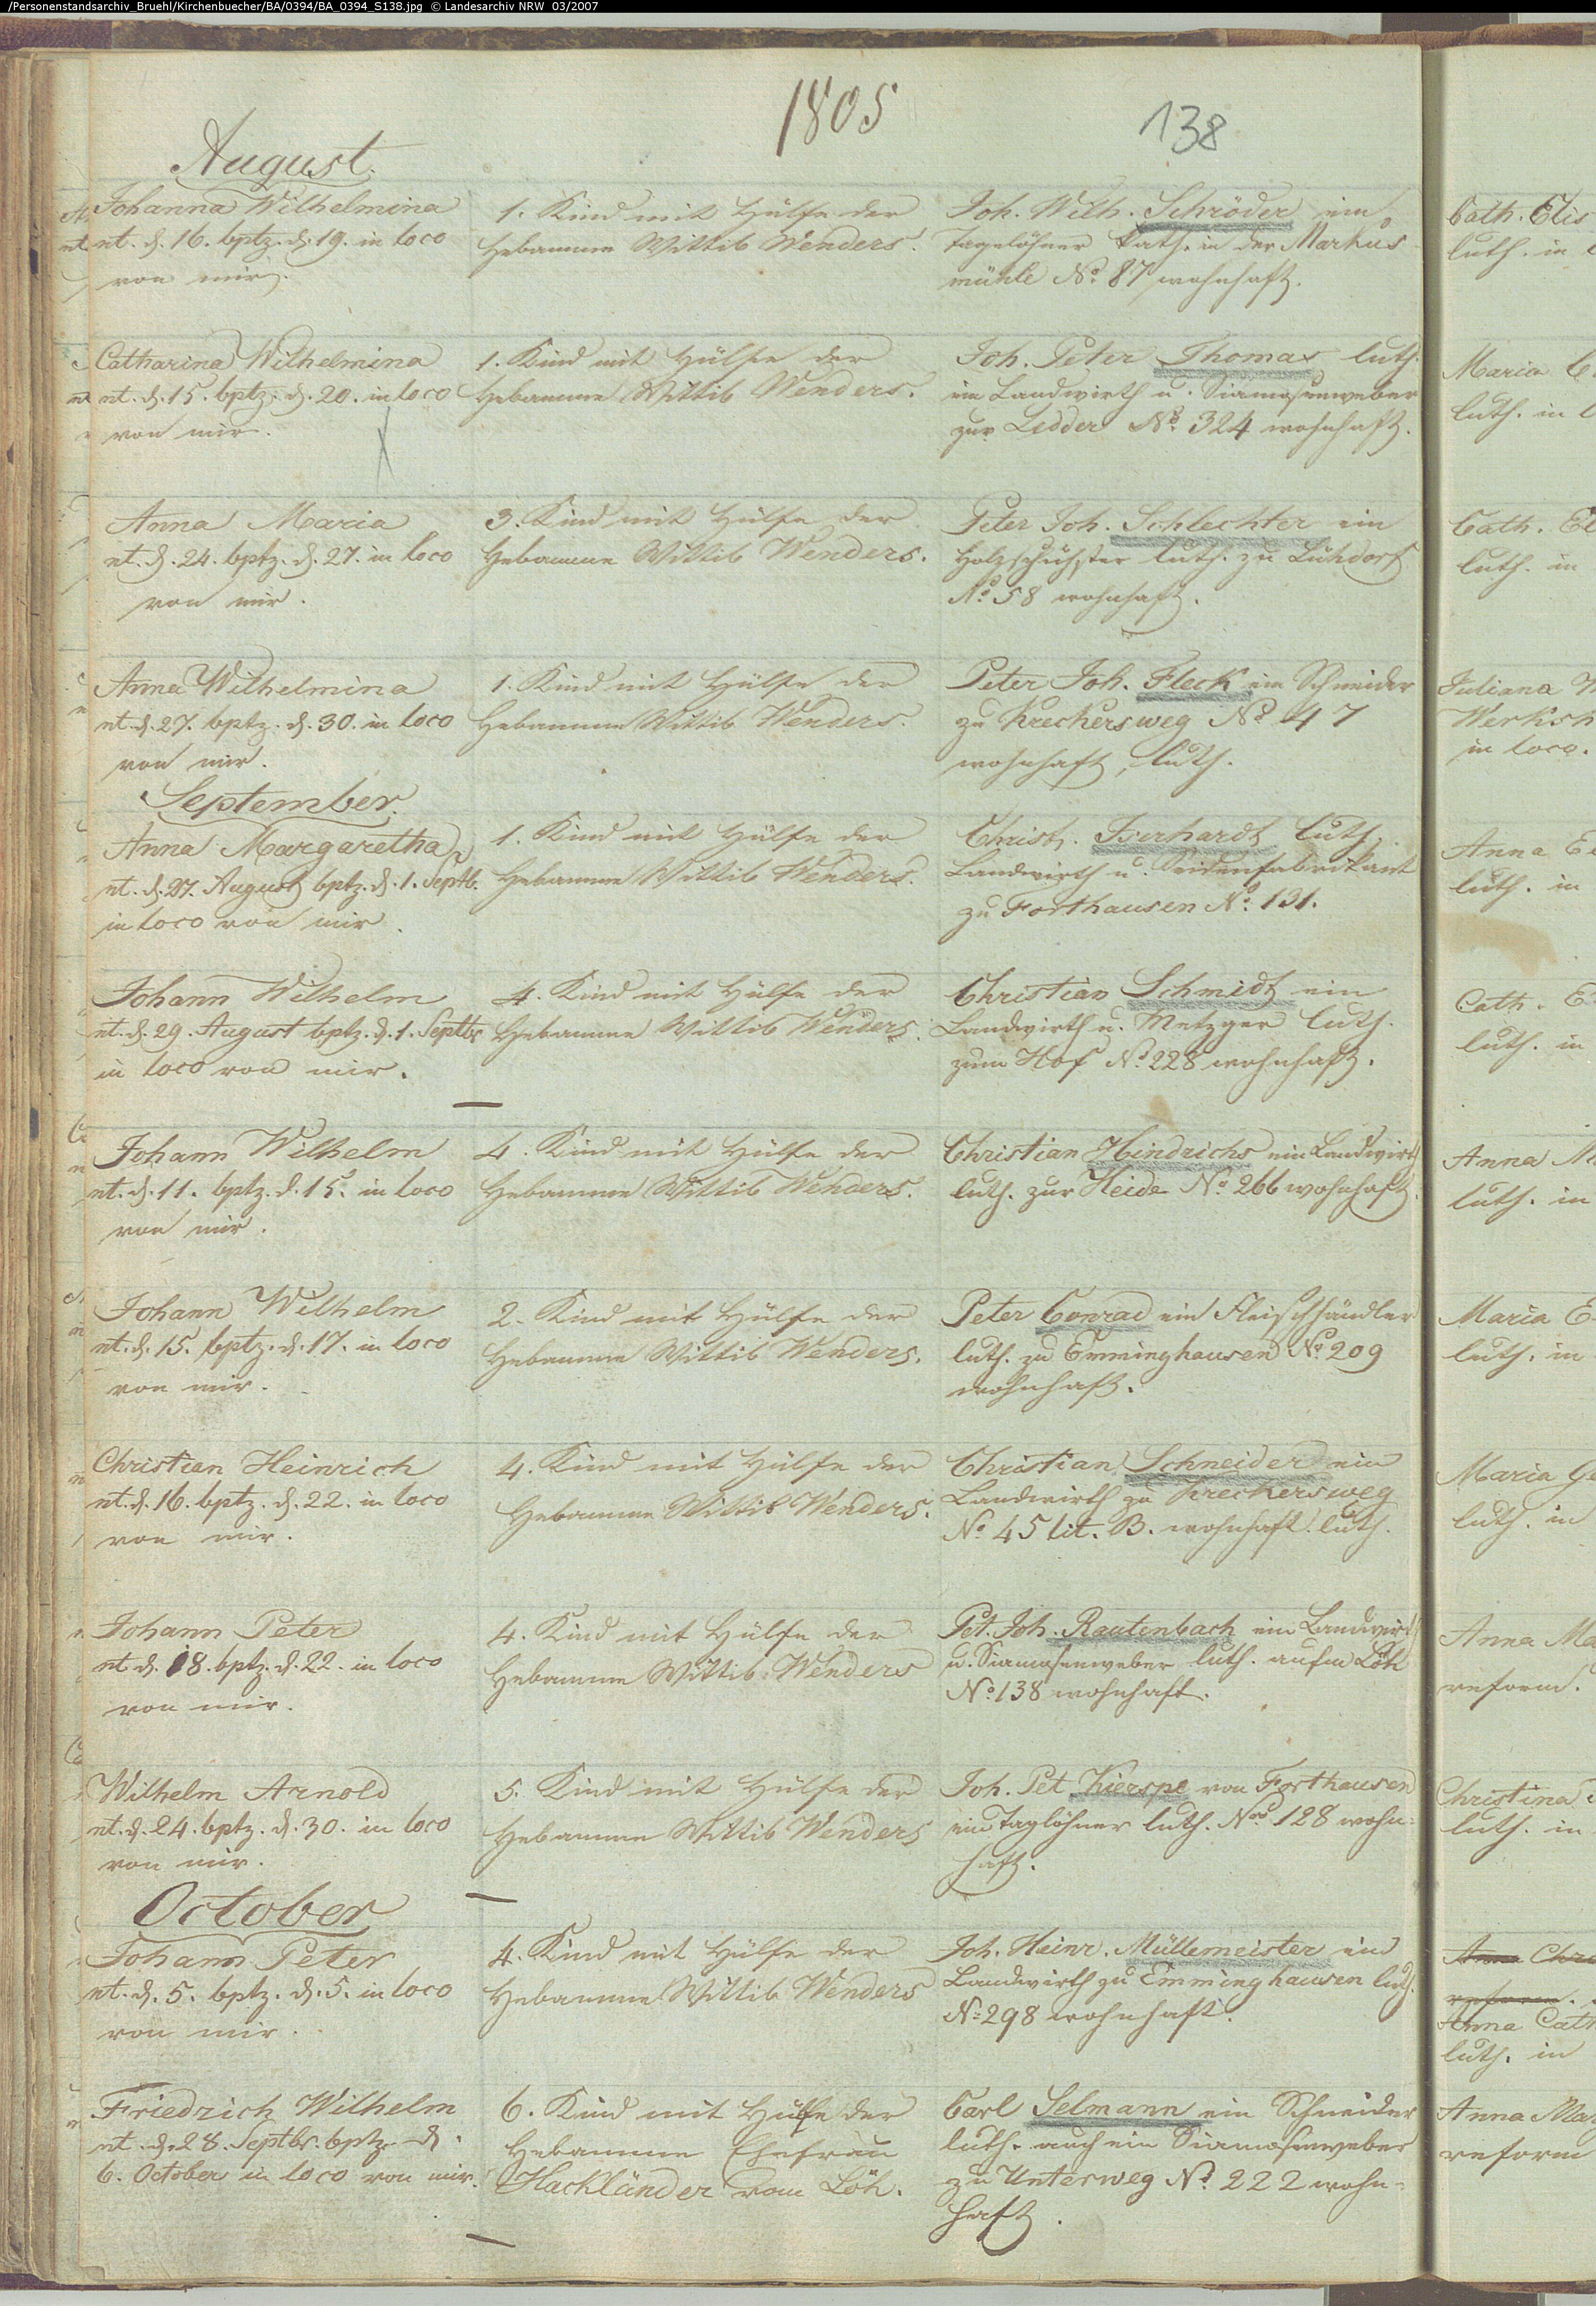 /Personenstandsarchiv_Bruehl/Kirchenbuecher/BA/0394/BA_0394_S138.jpg © Landesarchiv NRW 03/2007
1805
138
August.
Johanna Wilhelmina
nt. d. 16. bptz. d. 19. in loco
von mir.
1. Kind mit Hülfe der
Hebamme Wittib Wenders.
Joh. Wilh. Schröder ein
Tagelöhner kath. in der Markus
mühle No. 87 wohnhaft.
Catharina Wilhelmina
nt. d. 15. bptz. d. 20. in loco
von mir.
1. Kind mit Hülfe der
Hebamme Wittib Wenders.
Joh. Peter Thomas luth.
ein Landwirth u. Siamosenweber
zur Ledder No. 324 wohnhaft.
Anna Maria
nt. d. 24. bptz. d. 27. in loco
von mir.
3. Kind mit Hülfe der
Hebamme Wittib Wenders.
Peter Joh. Schlechter ein
Holzschuhster luth. zu Lühdorf
No. 58 wohnhaft.
Anna Wilhelmina
nt. d. 27. bptz. d. 30. in loco
von mir.
1. Kind mit Hülfe der
Hebamme Wittib Wenders.
Peter Joh. Fleck ein Schneider
zu Kreckersweg No. 47
wohnhaft, luth.
September.
Anna Margaretha
nt. d. 27. August bptz. d. 1. Septb.
in loco von mir.
1. Kind mit Hülfe der
Hebamme Wittib Wenders.
Christ. Everhardt luth.
Landwirth u. Seidenfabrikant
zu Forthausen No. 131.
Johann Wilhelm
nt. d. 29. August bptz. d. 1. Septbr
in loco von mir.
4. Kind mit Hülfe der
Hebamme Wittib Wenders.
Christian Schmidt ein
Landwirth u. Metzger luth.
zum Hof No. 228 wohnhaft.
Johann Wilhelm
nt. d. 11. bptz. d. 15. in loco
von mir.
4. Kind mit Hülfe der
Hebamme Wittib Wenders.
Christian Hindrichs ein Landwirth
luth. zur Heide No. 266 wohnhaft.
Johann Wilhelm
nt. d. 15. bptz. d. 17. in loco
von mir.
2. Kind mit Hülfe der
Hebamme Wittib Wenders.
Peter Conrad ein Fleischhändler
luth. zu Emminghausen No. 209
wohnhaft.
Christian Heinrich
nt. d. 16. bptz. d. 22. in loco
von mir.
4. Kind mit Hülfe der
Hebamme Wittib Wenders.
Christian Schneider ein
Landwirth zu Kreckersweg
No. 45 lit. B. wohnhaft. luth.
Johann Peter
nt. d. 18. bptz. d. 22. in loco
von mir.
4. Kind mit Hülfe der
Hebamme Wittib Wenders
Pet. Joh. Rautenbach ein Landwirth
u. Siamosenweber luth. aufm Löh
No. 138 wohnhaft.
Wilhelm Arnold
nt. d. 24. bptz. d. 30. in loco
von mir.
5. Kind mit Hülfe der
Hebamme Wittib Wenders
Joh. Pet. Kierspe von Forthausen
ein Taglöhner luth. No. 128 wohn-
haft.
October
Johann Peter
nt. d. 5. bptz. d. 5. in loco
von mir.
4. Kind mit Hülfe der
Hebamme Wittib Wenders
Joh. Heinr. Müllemeister ein
Landwirth zu Emminghausen luth.
No. 298 wohnhaft.
Friedrich Wilhelm
nt. d. 28. Septbr. bptz. d.
6. October in loco von mir.
6. Kind mit Hülfe der
Hebamme Ehefrau
Hackländer vom Löh.
Carl Selmann ein Schneider
luth. auch ein Siamosenweber
zu Unterweg No. 222 wohn-
haft.
Cath. Elis
luth. in
Maria
luth. in
Cath.
luth. in
Juliana
in loco.
Anna
luth. in
Cath.
luth. in
Anna
luth. in
Maria
luth. in
Maria
luth. in
Anna
reform.
Christina
luth. in
Anna
Anna Cath
luth. in
Anna Mar
reform